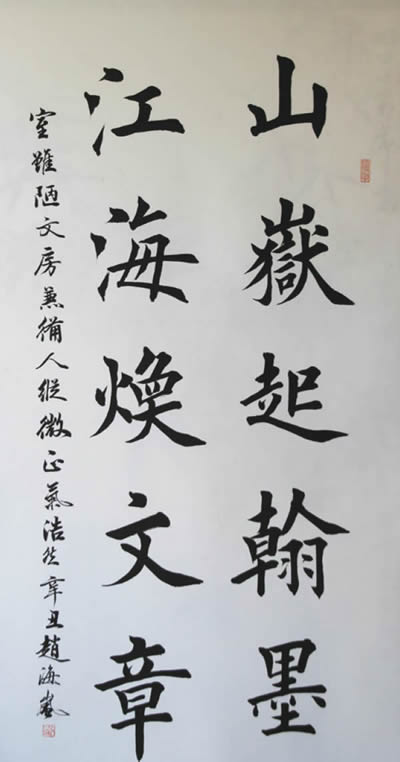 山嶽起翰墨
江海煥文章
室雖陋文房兼備人縱微正氣浩然辛丑趙海嵐